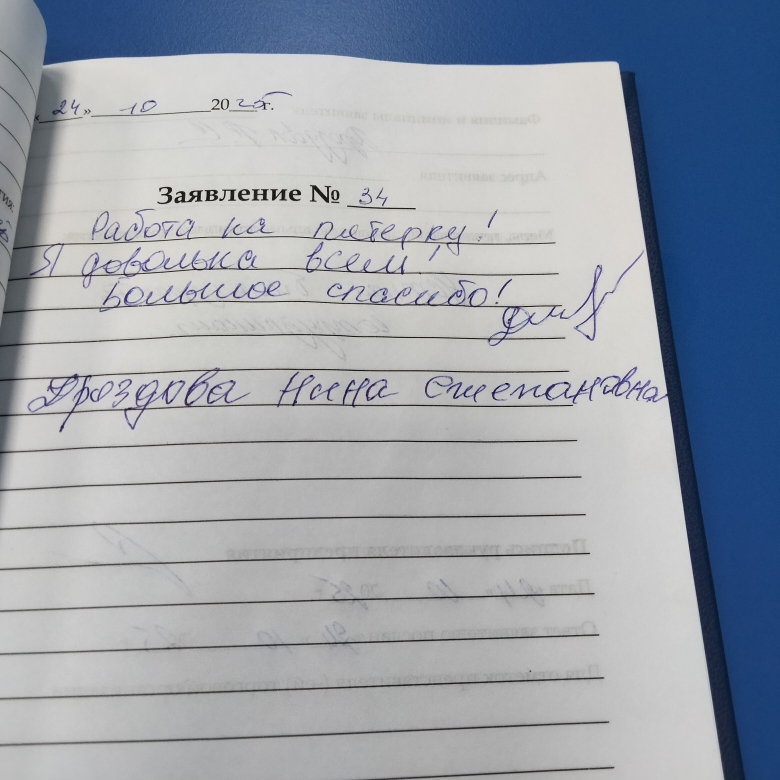 « 24 » 10 2025 г.
Заявление № 34
Работа на пятерку!
Я довольна всем!
Большое спасибо!
Дроздова Нина Степановна